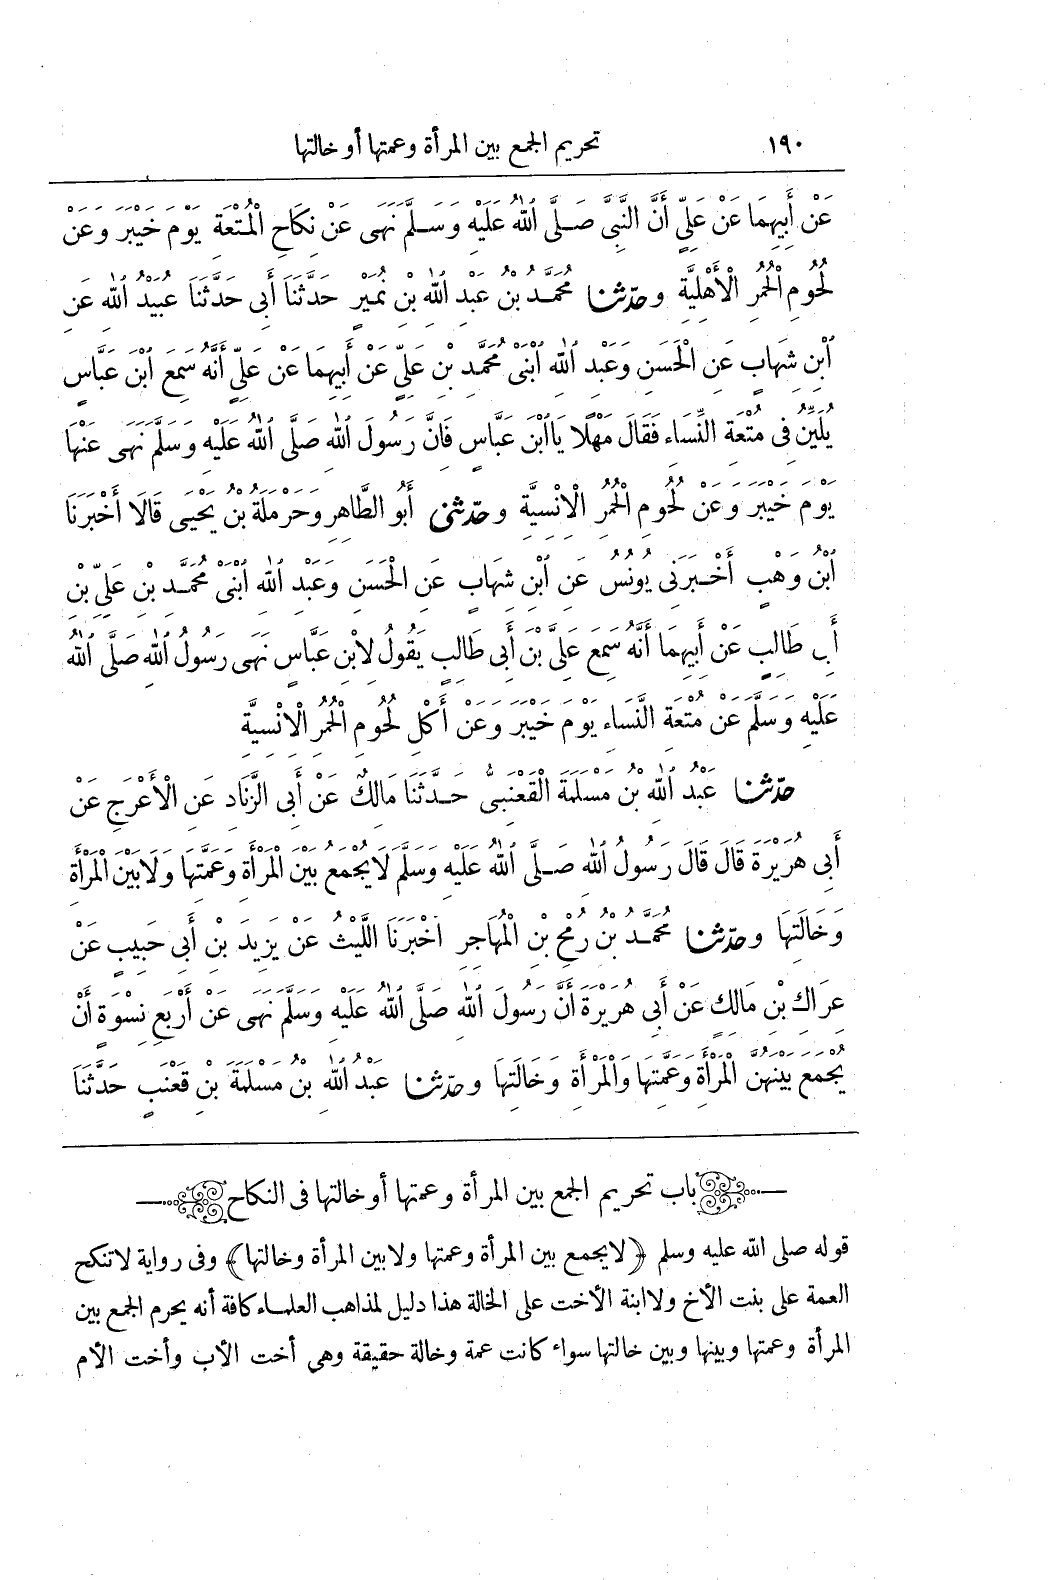 ١٩٠ تحريم الجمع بين المرأة وعمتها أو خالتها
عَنْ أَبِيهِمَا عَنْ عَلِىٍّ أَنَّ النَّبِىَّ صَلَّى اللّٰهُ عَلَيْهِ وَسَلَّمَ نَهَى عَنْ نِكَاحِ الْمُتْعَةِ يَوْمَ خَيْبَرَ وَعَنْ
لُحُومِ الْحُمُرِ الْأَهْلِيَّةِ وحدّثنا مُحَمَّدُ بْنُ عَبْدِ اللّٰهِ بْنِ نُمَيْرٍ حَدَّثَنَا أَبِى حَدَّثَنَا عُبَيْدُ اللّٰهِ عَنِ
ابْنِ شِهَابٍ عَنِ الْحَسَنِ وَعَبْدِ اللّٰهِ ابْنَىْ مُحَمَّدِ بْنِ عَلِىٍّ عَنْ أَبِيهِمَا عَنْ عَلِىٍّ أَنَّهُ سَمِعَ ابْنَ عَبَّاسٍ
يُلَيِّنُ فِى مُتْعَةِ النِّسَاءِ فَقَالَ مَهْلًا يَا ابْنَ عَبَّاسٍ فَانَّ رَسُولَ اللّٰهِ صَلَّى اللّٰهُ عَلَيْهِ وَسَلَّمَ نَهَى عَنْهَا
يَوْمَ خَيْبَرَ وَعَنْ لُحُومِ الْحُمُرِ الْانْسِيَّةِ وحدّثنى أَبُو الطَّاهِرِ وَحَرْمَلَةُ بْنُ يَحْيَى قَالَا أَخْبَرَنَا
ابْنُ وَهْبٍ أَخْبَرَنِى يُونُسُ عَنِ ابْنِ شِهَابٍ عَنِ الْحَسَنِ وَعَبْدِ اللّٰهِ ابْنَىْ مُحَمَّدِ بْنِ عَلِىِّ بْنِ
أَبِى طَالِبٍ عَنْ أَبِيهِمَا أَنَّهُ سَمِعَ عَلِىَّ بْنَ أَبِى طَالِبٍ يَقُولُ لِابْنِ عَبَّاسٍ نَهَى رَسُولُ اللّٰهِ صَلَّى اللّٰهُ
عَلَيْهِ وَسَلَّمَ عَنْ مُتْعَةِ النِّسَاءِ يَوْمَ خَيْبَرَ وَعَنْ أَكْلِ لُحُومِ الْحُمُرِ الْانْسِيَّةِ
حدّثنا عَبْدُ اللّٰهِ بْنُ مَسْلَمَةَ الْقَعْنَبِىُّ حَدَّثَنَا مَالِكٌ عَنْ أَبِى الزِّنَادِ عَنِ الْأَعْرَجِ عَنْ
أَبِى هُرَيْرَةَ قَالَ قَالَ رَسُولُ اللّٰهِ صَلَّى اللّٰهُ عَلَيْهِ وَسَلَّمَ لَا يُجْمَعُ بَيْنَ الْمَرْأَةِ وَعَمَّتِهَا وَلَا بَيْنَ الْمَرْأَةِ
وَخَالَتِهَا وحدّثنا مُحَمَّدُ بْنُ رُمْحِ بْنِ الْمُهَاجِرِ اخْبَرَنَا اللَّيْثُ عَنْ يَزِيدَ بْنِ أَبِى حَبِيبٍ عَنْ
عِرَاكِ بْنِ مَالِكٍ عَنْ أَبِى هُرَيْرَةَ أَنَّ رَسُولَ اللّٰهِ صَلَّى اللّٰهُ عَلَيْهِ وَسَلَّمَ نَهَى عَنْ أَرْبَعِ نِسْوَةٍ أَنْ
يُجْمَعَ بَيْنَهُنَّ الْمَرْأَةِ وَعَمَّتِهَا وَالْمَرْأَةِ وَخَالَتِهَا وحدّثنا عَبْدُ اللّٰهِ بْنُ مَسْلَمَةَ بْنِ قَعْنَبٍ حَدَّثَنَا
باب تحريم الجمع بين المرأة وعمتها أو خالتها فى النكاح
قوله صلى اللّٰه عليه وسلم ﴿لا يجمع بين المرأة وعمتها ولا بين المرأة وخالتها﴾ وفى رواية لاتنكح
العمة على بنت الأخ ولا ابنة الأخت على الخالة هذا دليل لمذاهب العلماء كافة أنه يحرم الجمع بين
المرأة وعمتها وبينها وبين خالتها سواء كانت عمة وخالة حقيقة وهى أخت الأب وأخت الأم